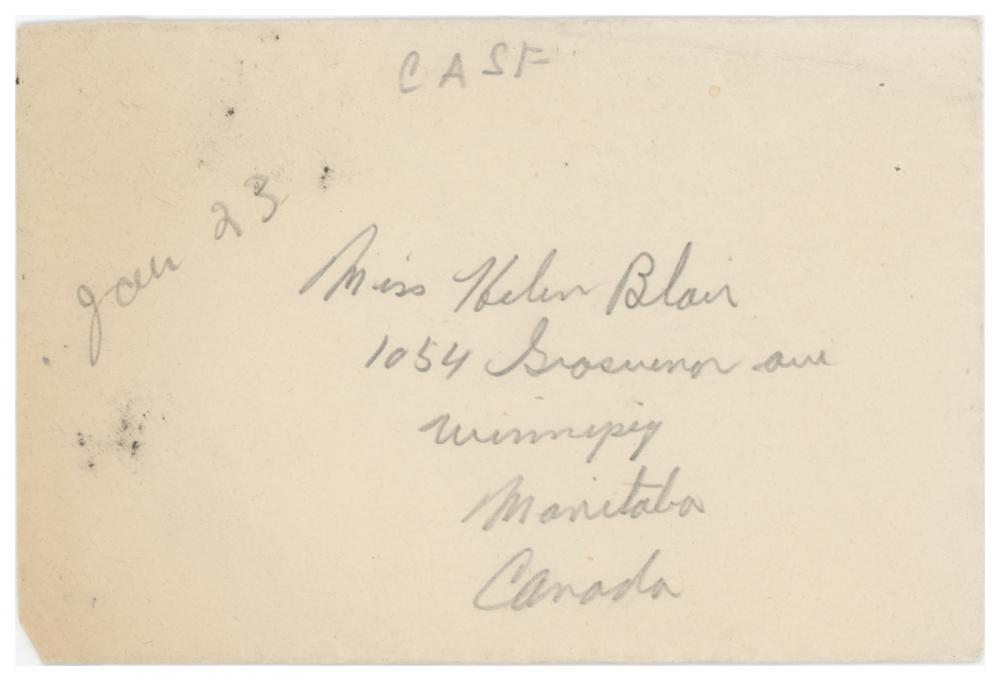 CASF
Jan 23
Miss Helen Blair
1054 Grosvenor ave
Winnipeg
Manitoba
Canada